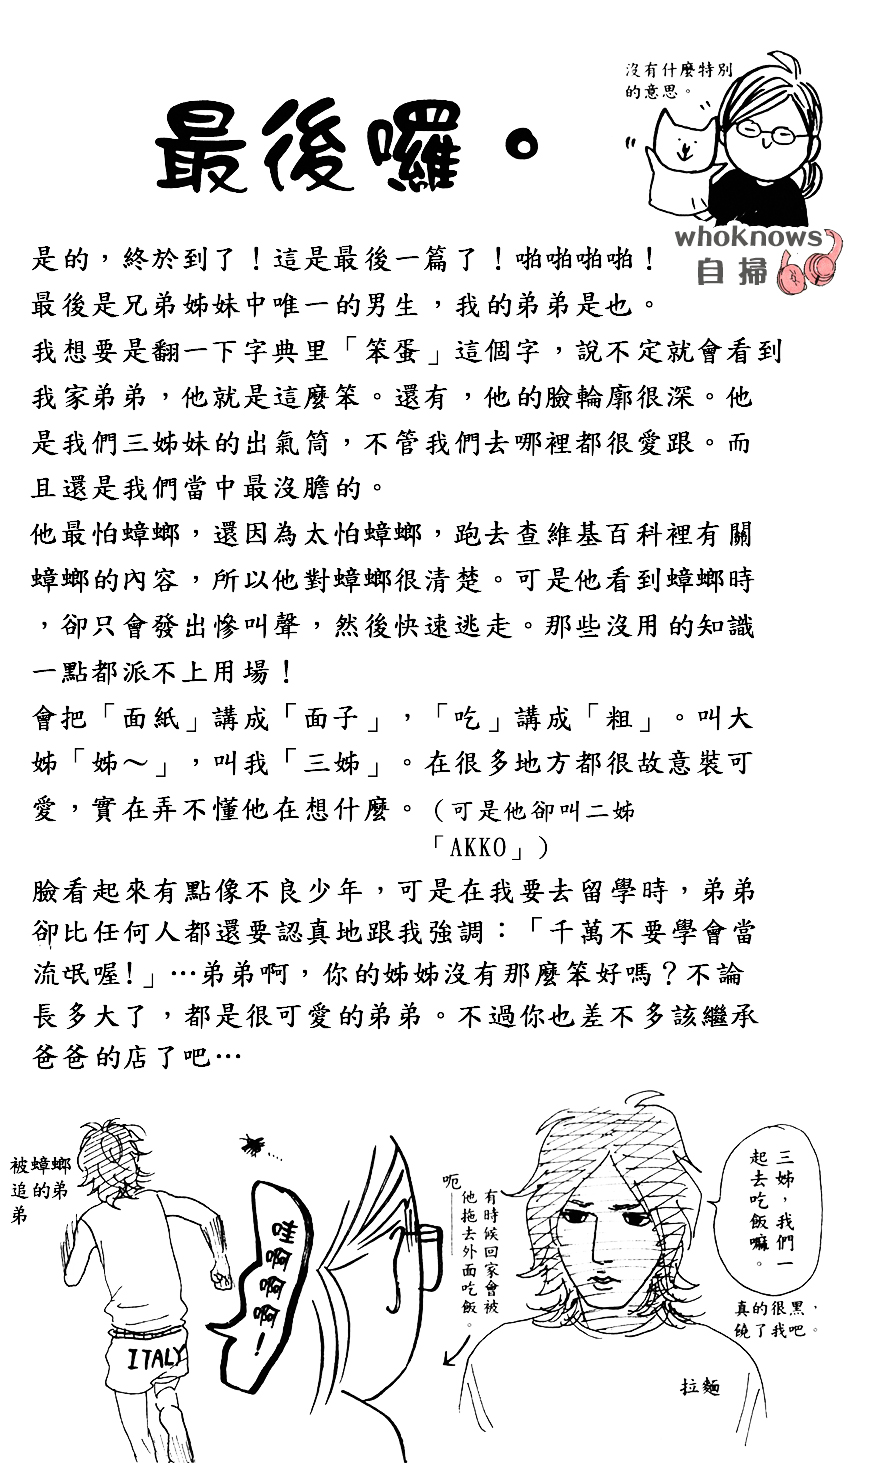 沒有什麼特別
的意思。
最後囉。
whoknows
自掃
是的，終於到了！這是最後一篇了！啪啪啪啪！
最後是兄弟姊妹中唯一的男生，我的弟弟是也。
我想要是翻一下字典里「笨蛋」這個字，說不定就會看到
我家弟弟，他就是這麼笨。還有，他的臉輪廓很深。他
是我們三姊妹的出氣筒，不管我們去哪裡都很愛跟。而
且還是我們當中最沒膽的。
他最怕蟑螂，還因為太怕蟑螂，跑去查維基百科裡有關
蟑螂的內容，所以他對蟑螂很清楚。可是他看到蟑螂時
，卻只會發出慘叫聲，然後快速逃走。那些沒用的知識
一點都派不上用場！
會把「面紙」講成「面子」，「吃」講成「粗」。叫大
姊「姊～」，叫我「三姊」。在很多地方都很故意裝可
愛，實在弄不懂他在想什麼。（可是他卻叫二姊
「AKKO」）
臉看起來有點像不良少年，可是在我要去留學時，弟弟
卻比任何人都還要認真地跟我強調：「千萬不要學會當
流氓喔！」…弟弟啊，你的姊姊沒有那麼笨好嗎？不論
長多大了，都是很可愛的弟弟。不過你也差不多該繼承
爸爸的店了吧…
被蟑螂
追的弟
弟
哇啊啊啊！
ITALY
有時候回家會被
他拖去外面吃飯。
呃
三姊，我們一
起去吃飯嘛。
真的很黑，
饒了我吧。
拉麵